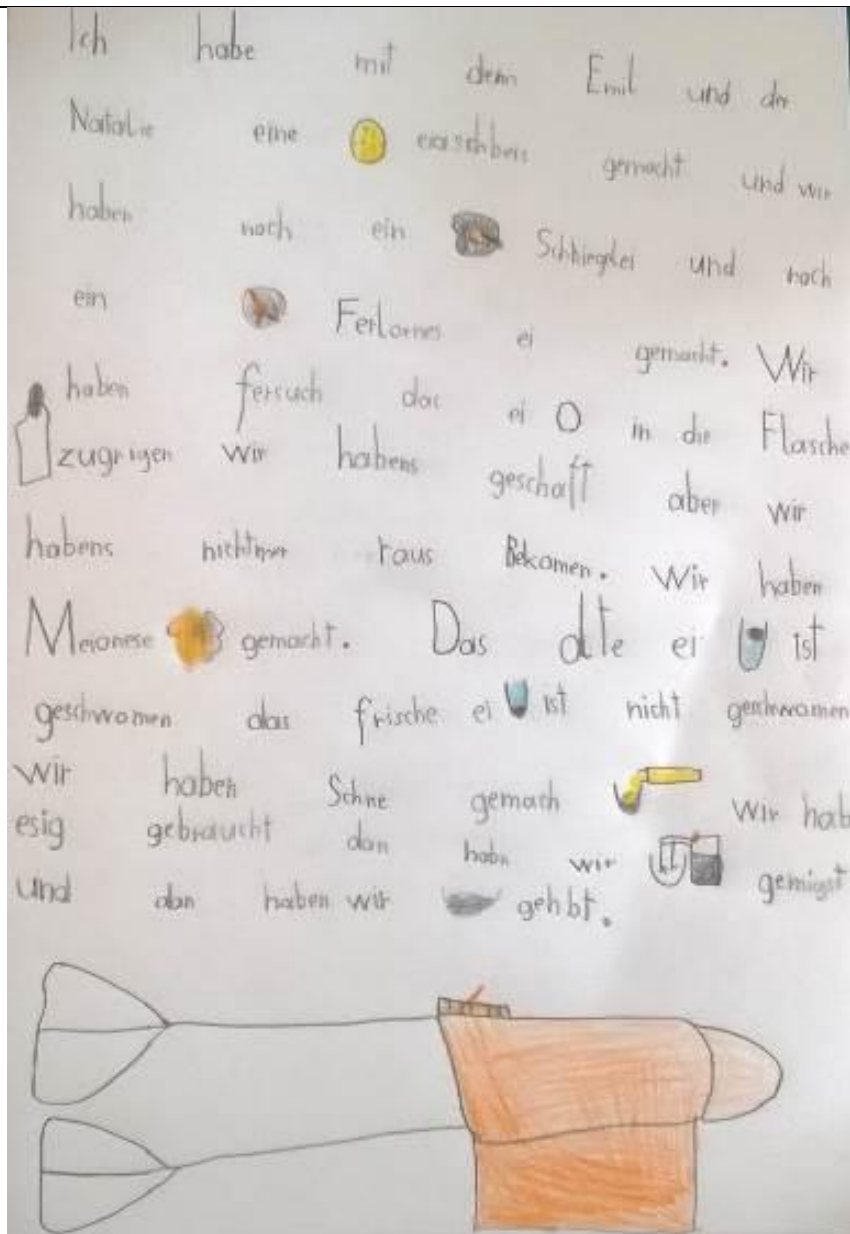 Ich habe mit dem Emil und der
Natalie eine gemacht und wir
haben noch ein Schbiegelei und noch
ein Ferlornes ei gemacht. Wir
haben fersuch das ei in die Flasche
zugrigen wir habens geschaft aber wir
habens nichtmer raus Bekomen. Wir haben
Meionese gemacht. Das alte ei ist
geschwomen das frische ei ist nicht geschwomen
wir haben Schne gemach wir hab
esig gebraucht dan habn wir gemigst
und dan haben wir gehbt.